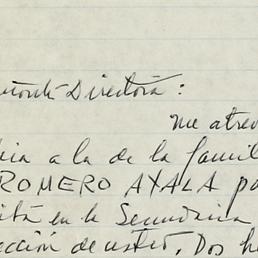 Directora:
me atrev
a la de la famil
ROMERO AYALA pa
en la Secundaria
cción de usted. Dos he